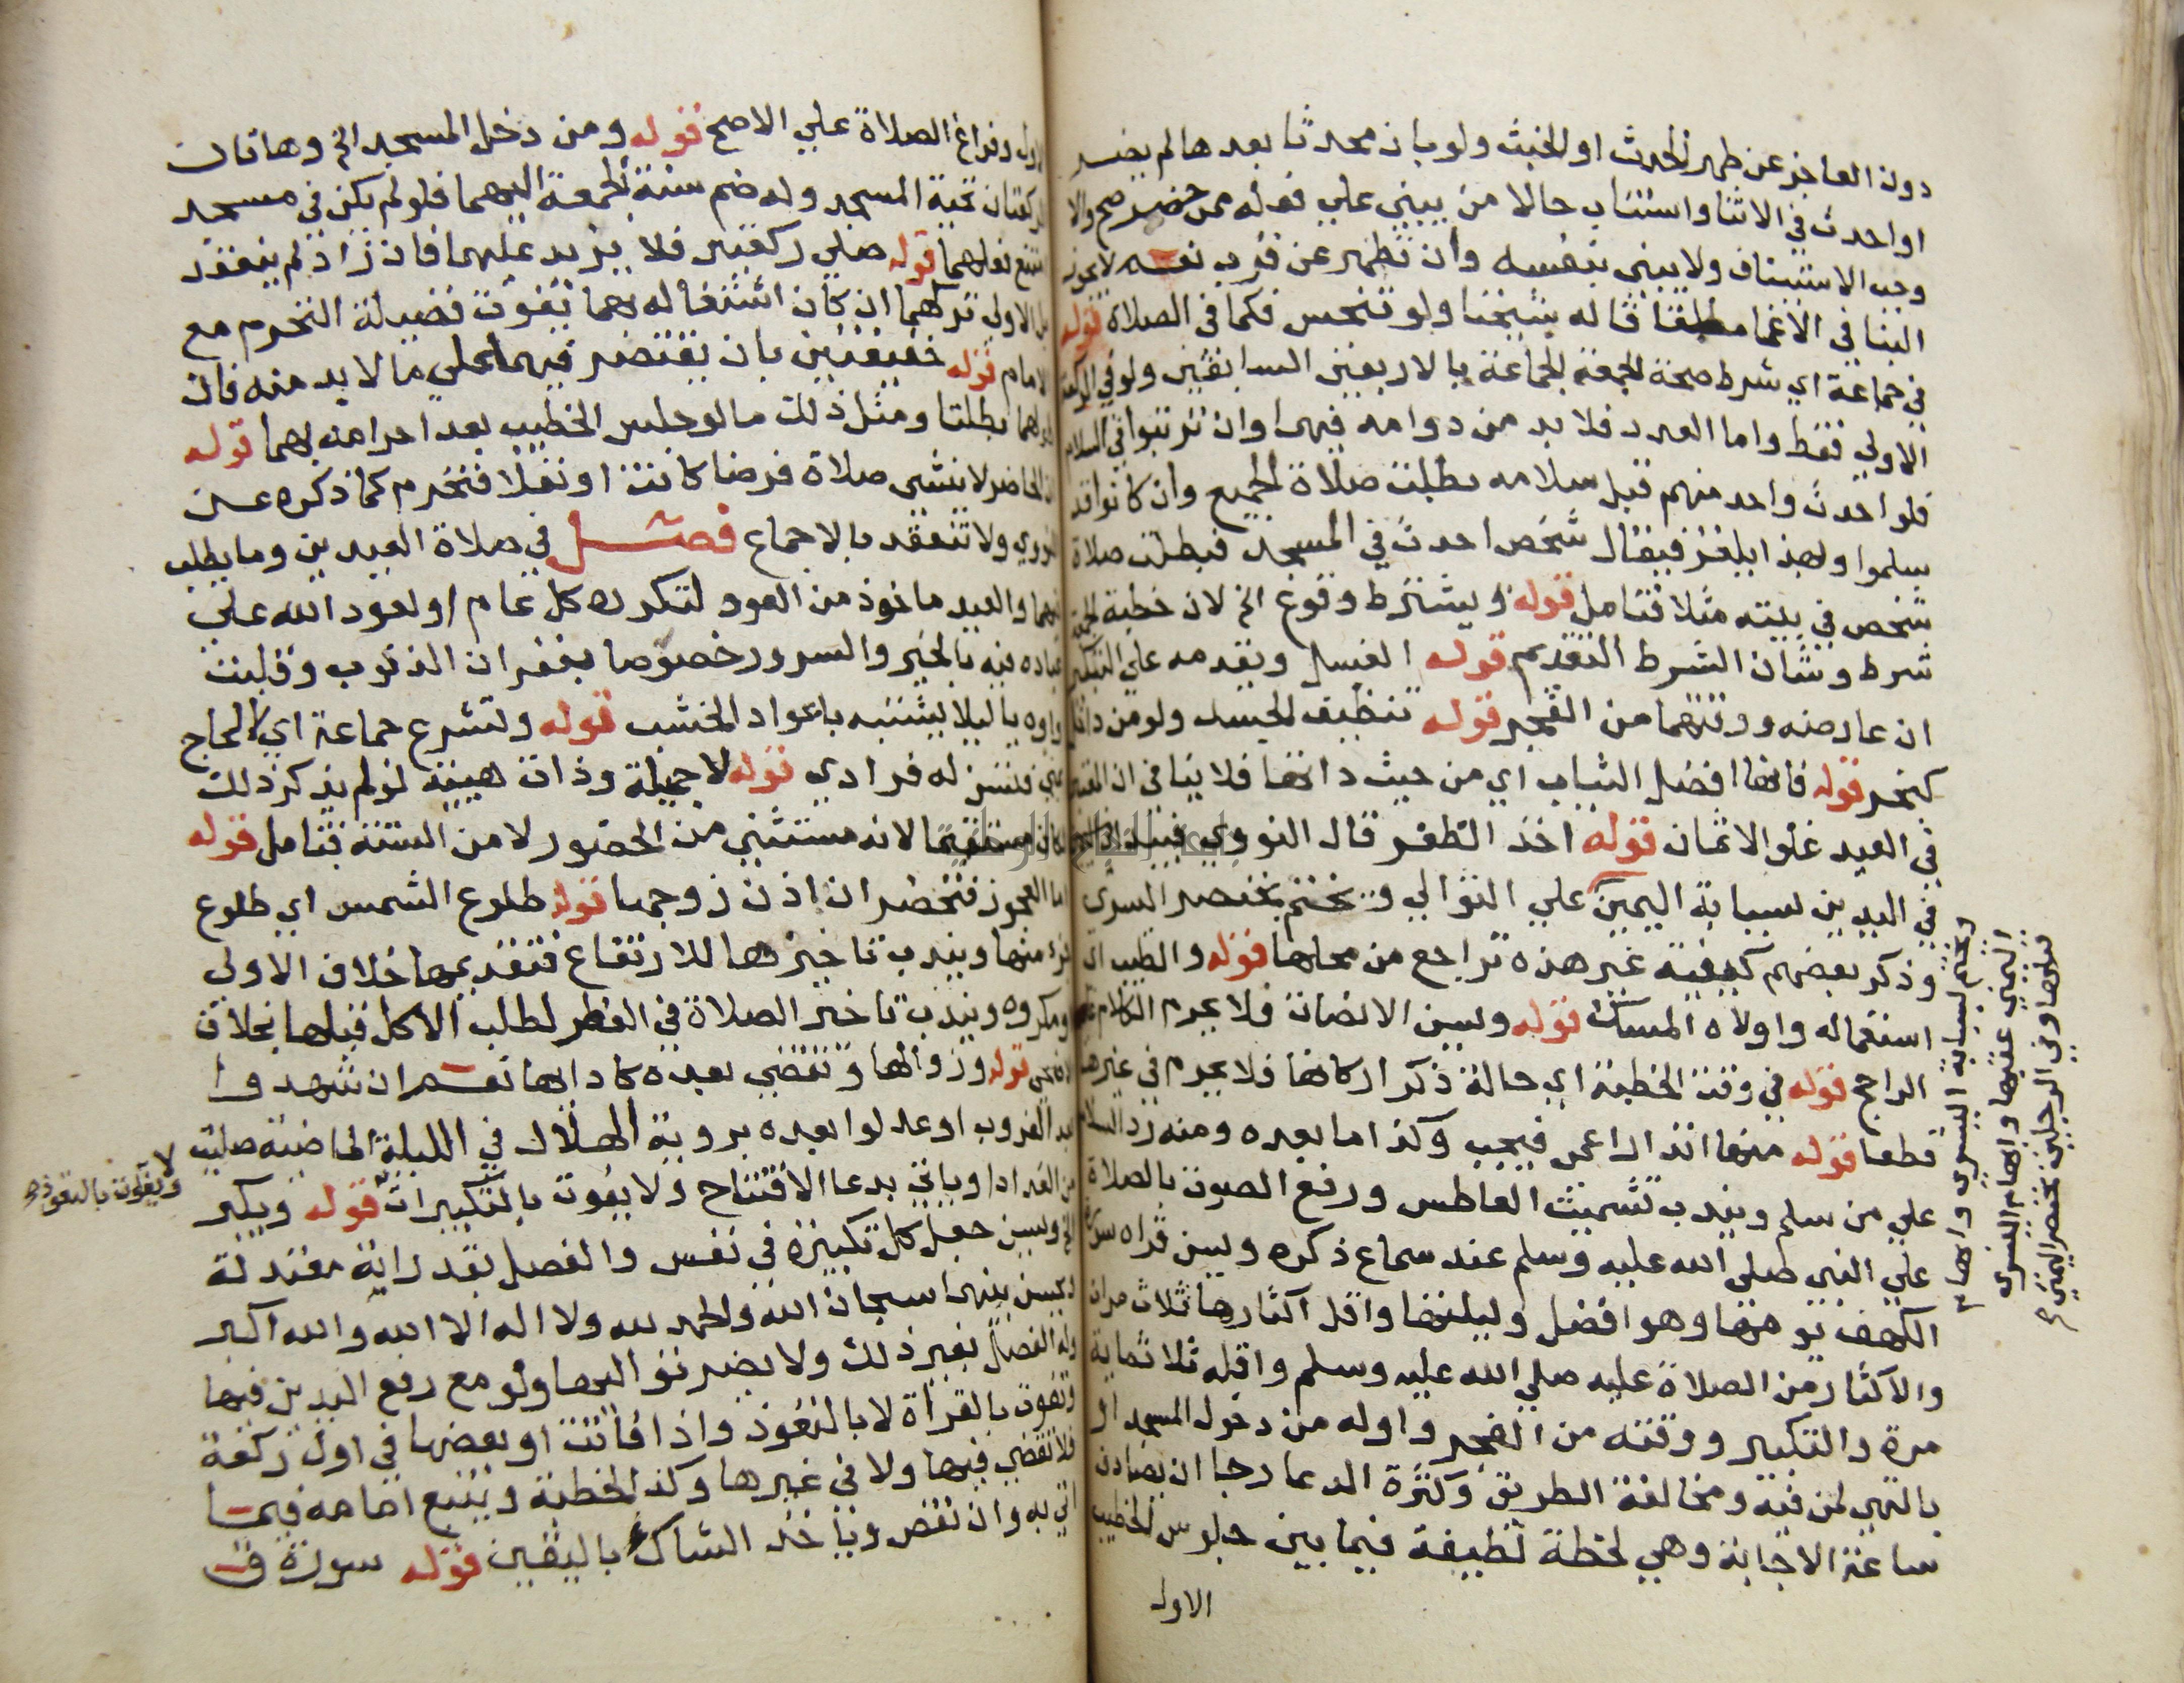 دون العاجز عن طهر الحدث او الخبث ولو بان محدثا بعدها لم يضر
او احدث في الاثنا واستناب حالا من يبني علي فعله ممن حضر صح والا
وجب الاستيناف ولا يبني بنفسه وان تطهر عن قرب نعم لا يجوز
البنا في الاغما مطلقا قاله شيخنا ولو تنجس فكما في الصلاة قوله
في جماعة اي شرط صحة الجمعة الجماعة بالاربعين السابقين ولو في الركعة
الاولي فقط واما العدد فلا بد من دوامه فيهما وان ترتبوا في السلام
فلو احدث واحد منهم قبل سلامه بطلت صلاة الجميع وان كانوا قد
سلموا ولهذا يلغز فيقال شخص احدث في المسجد فبطلت صلاة
شخص في بيته مثلا فتامل قوله ويشترط وقوع الخ لان خطبة الجمعة
شرط وشان الشرط التقديم قوله الغسل ويقدمه علي التبكير
ان عارضه ووقتهما من الفجر قوله تنظيف الجسد ولو من
كبخر قوله فانها افضل الثياب اي من حيث ذاتها فلا ينافي ان المعتبر
في العيد غلو الاثمان قوله اخذ الظفر قال النووي فيبدا
في اليدين بسبابة اليمين علي التوالي ويختم بخنصر اليسري
وذكر بعضهم كيفية غير هذه تراجع من محلها قوله والطيب اي
استعماله واولاه المسك قوله ويسن الانصات فلا يحرم الكلام علي
الراجح قوله في وقت الخطبة اي حالة ذكر اركانها فلا يحرم في غيرها
قطعا قوله منها انذار اعمي فيجب وكذا ما بعده ومنه رد السلام
علي من سلم ويندب تشميت العاطس ورفع الصوت بالصلاة
علي النبي صلي الله عليه وسلم عند سماع ذكره ويسن قراه سورة
الكهف يومها وهو افضل وليلتها واقل اكثارها ثلاث مرات
والاكثار من الصلاة عليه صلي الله عليه وسلم واقله ثلاثماية
مرة والتكبير ووقته من الفجر واوله من دخول المسجد او
بالتهي لمن فيه ومخالفة الطريق وكثرة الدعا رجا ان يصادف
ساعة الاجابة وهي لحظة لطيفة فيما بين جلوس الخطيب
الاول
ويختم بسبابة اليسري وابهام
اليمني عقبها وابهام اليسري
بعدها وفي الرجلين بخنصر اليمني
الاول وفراغ الصلاة علي الاصح قوله ومن دخل المسجد الخ وهاتان
الركعتان تحية المسجد وله ضم سنة الجمعة اليهما فلو لم يكن في مسجد
امتنع فعلهما قوله صلي ركعتين فلا يزيد عليهما فان زاد لم ينعقد
بل الاولي تركهما ان كان اشتغاله بهما يفوت فضيلة التحرم مع
الامام قوله خفيفتين بان يقتصر فيهما علي ما لا بد منه فان
طولهما بطلتا ومثل ذلك ما لو جلس الخطيب بعد احرامه بهما قوله
ان الحاضر لا ينشي صلاة فرضا كانت او نفلا فتحرم كما ذكره عن
النووي ولا تنعقد بالاجماع فصل في صلاة العيدين وما يطلب
فيهما والعيد ماخوذ من العود لتكرره كل عام او لعود الله علي
عباده فيه بالخير والسرور خصوصا بغفران الذنوب وقلبت
واوه يا ليلا يشتبه باعواد الخشب قوله وتشرع جماعة اي لا لحاج
بمني فتسن له فرادي قوله لا جميلة وذات هيية لو لم يذكر ذلك
كان مستقيما لانه مستثني من الحضور لا من السنة فتامل قوله
اما العجوز فتحضر ان اذن زوجها قوله طلوع الشمس اي طلوع
جزء منها ويندب تاخيرها للارتفاع فتقديمها خلاف الاولي
ومكروه ويندب تاخير الصلاة في الفطر لطلب الاكل قبلها بخلاف
الاضحي قوله وزوالها وتقضي بعده كادابها نعم ان شهدوا
بعد الغروب او عدلوا بعده بروية الهلال في الليلة الماضية صليت
من الغد ادا وياتي بدعا الافتتاح ولا يفوت بالتكبيرات قوله ويكبر
ولا يفوت بالتعوذ
الخ ويسن جعل كل تكبيرة في نفس والفصل بقدر اية معتدلة
ويحسن بينهما سبحان الله والحمد لله ولا اله الا الله والله اكبر
وله الفصل بغير ذلك ولا يضر تواليها ولو مع رفع اليدين فيها
وتفوت بالقراة لا بالتعوذ واذا فاتت او بعضها في اول ركعة
فلا تقضي فيها ولا في غيرها وكذا الخطبة ويتبع امامه فيما
اتي به وان نقص وياخذ الشاك باليقين قوله سورة ق